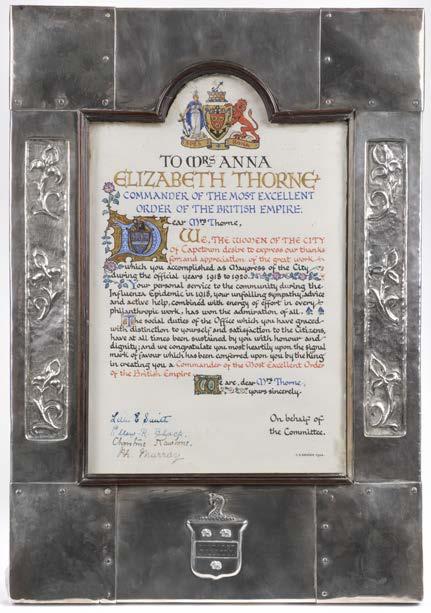 SPES BONA
TO MRS ANNA
ELIZABETH THORNE
COMMANDER OF THE MOST EXCELLENT
ORDER OF THE BRITISH EMPIRE.
Dear Mrs Thorne,
WE, THE WOMEN OF THE CITY
of Capetown desire to express our thanks
for and appreciation of the great work
which you accomplished as Mayoress of the City
during the official years 1918 to 1920.
Your personal service to the community during the
Influenza Epidemic in 1918, your unfailing sympathy, advice
and active help, combined with energy of effort in every
philanthropic work, has won the admiration of all.
The social duties of the Office which you have graced
with distinction to yourself and satisfaction to the Citizens,
have at all times been sustained by you with honour and
dignity; and we congratulate you most heartily upon the signal
mark of favour which has been conferred upon you by the King
in creating you a Commander of the Most Excellent Order
of the British Empire
We are, dear Mrs Thorne,
yours sincerely.
On behalf of
the Committee.
Murray